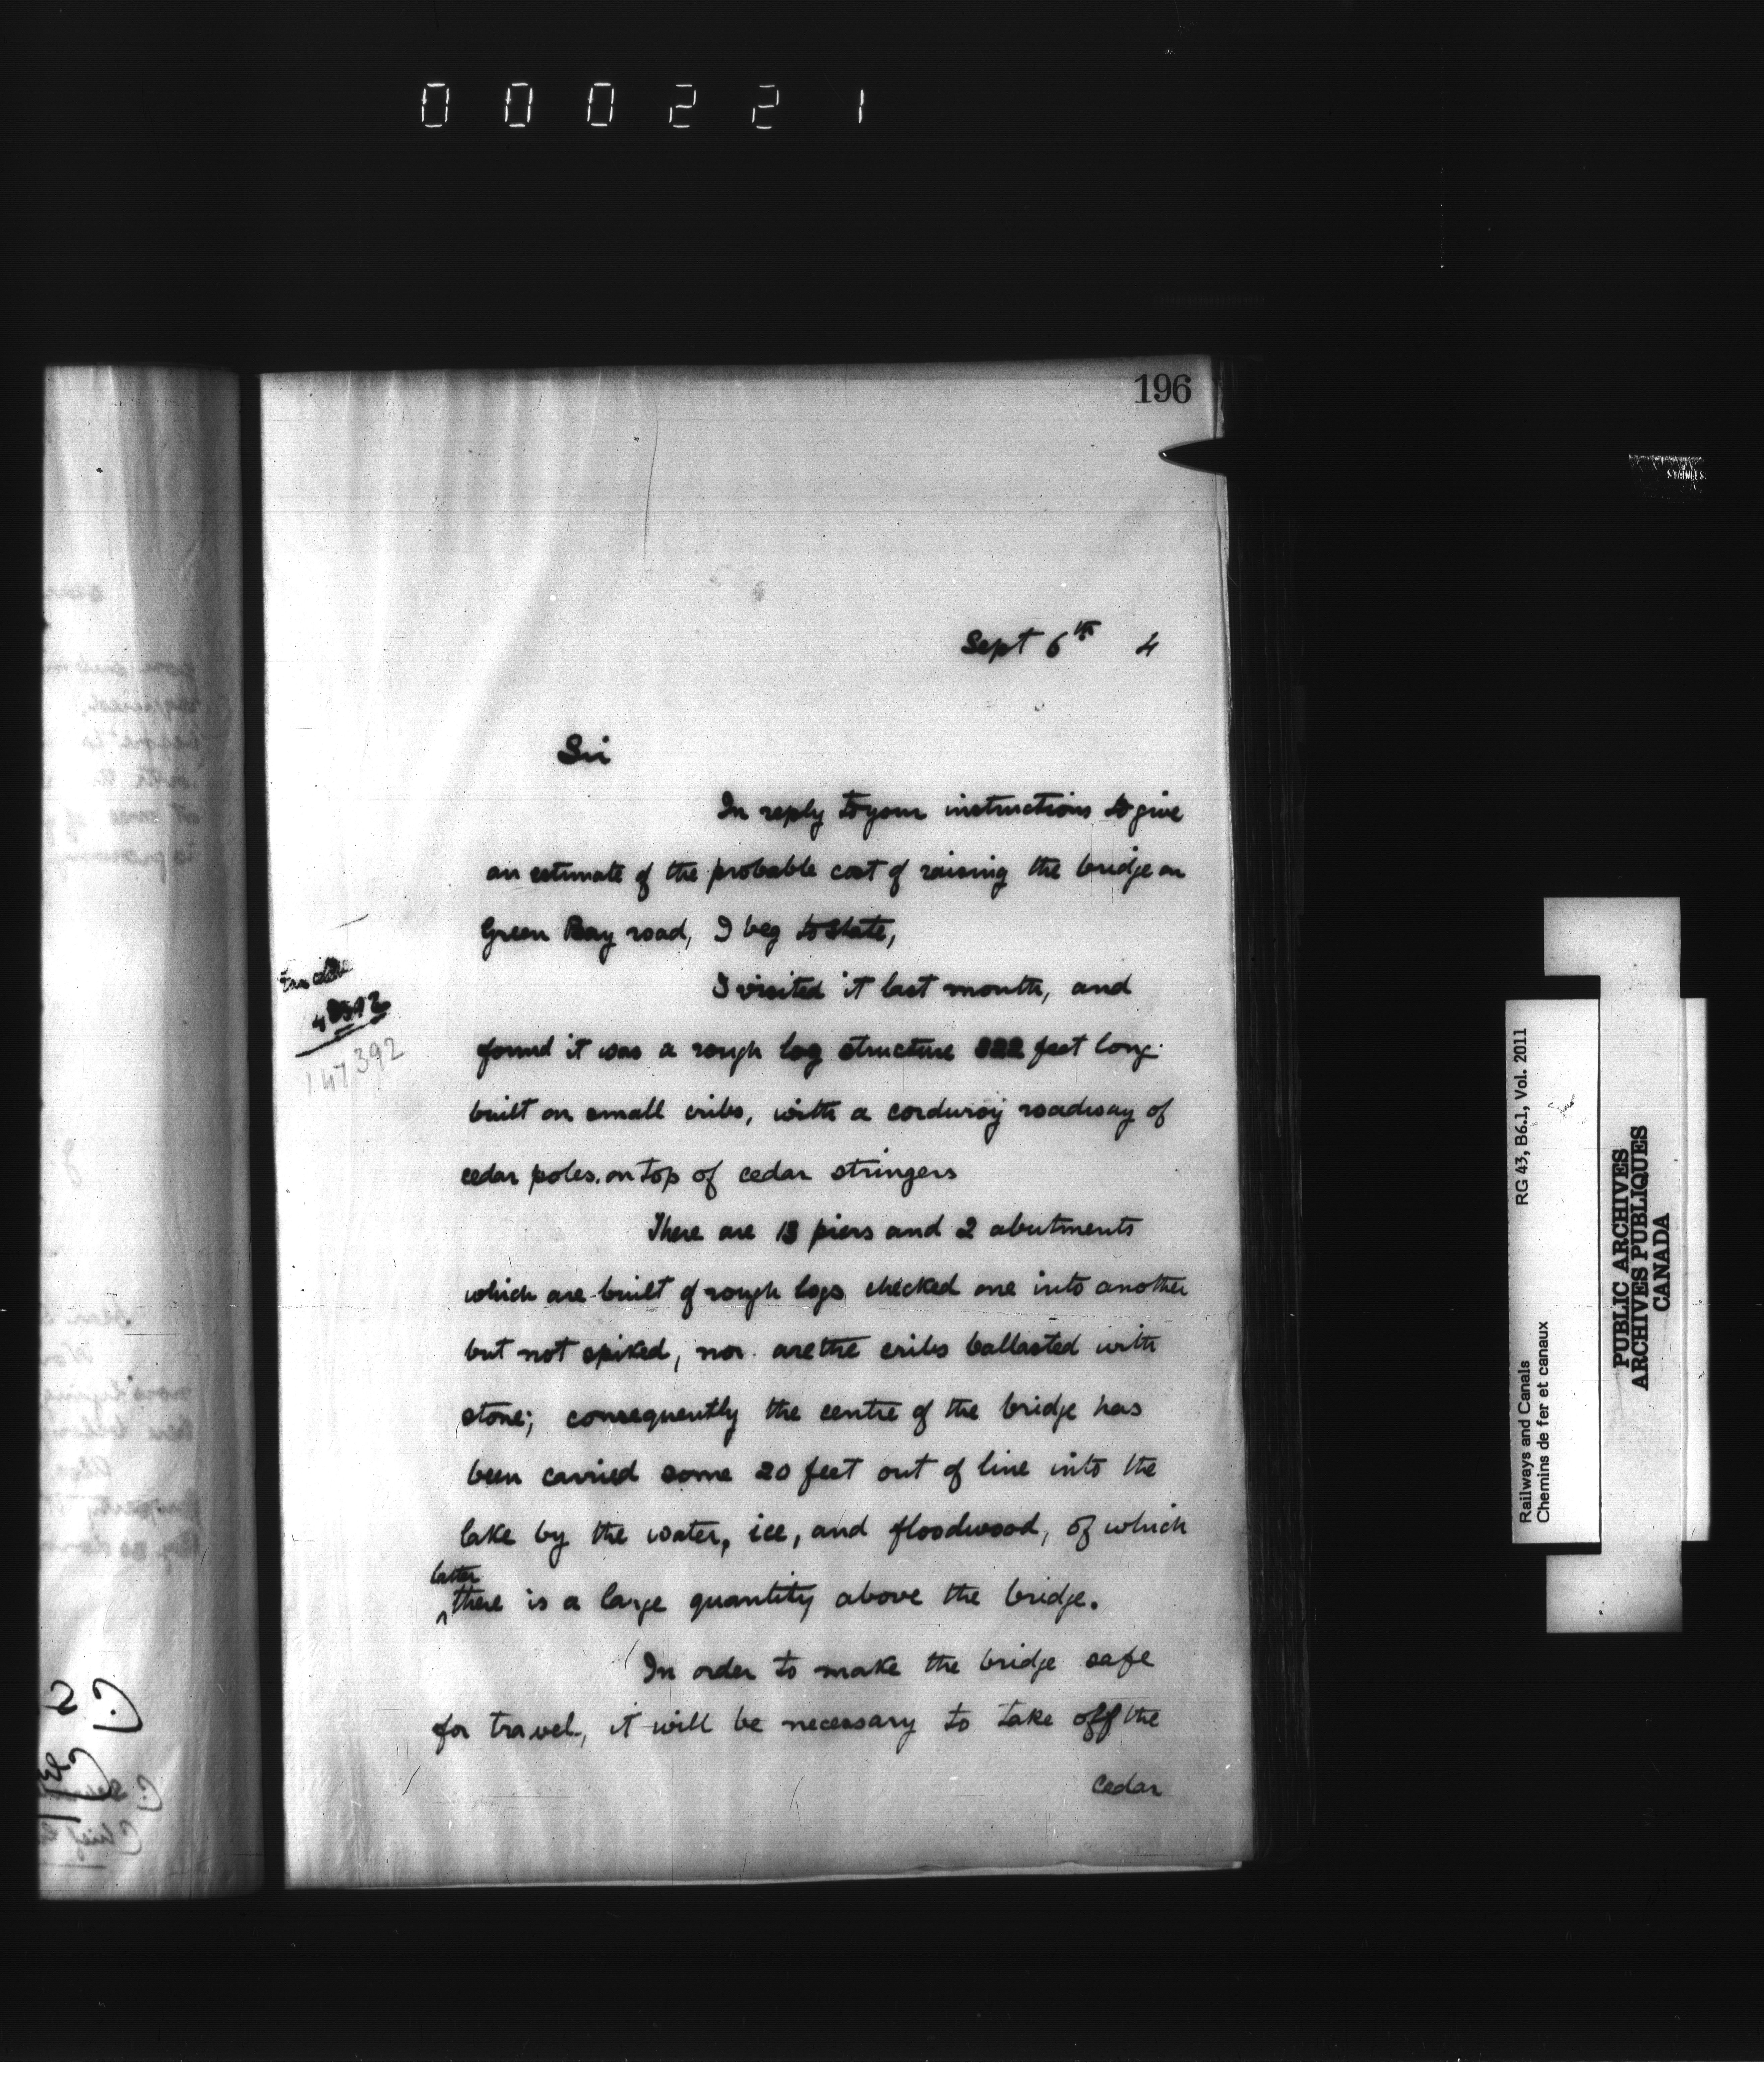 000221
196
Sept 6th 4
Sir
In reply to your instructions to give
an estimate of the probable cost of raising the bridge on
Green Bay road, I beg to state,
I visited it last month, and
found it was a rough log structure 322 feet long
built on small cribs, with a corduroy roadway of
cedar poles. on top of cedar stringers
There are 13 piers and 2 abutments
which are built of rough logs checked one into another
but not spiked, nor are the cribs ballasted with
stone; consequently the centre of the bridge has
been carried some 20 feet out of line into the
lake by the water, ice, and floodwood, of which
latter
^there is a large quantity above the bridge.
In order to make the bridge safe
for travel, it will be necessary to take off the
cedar
147392
Railways and Canals RG 43, B6.1, Vol. 2011
Chemins de fer et canaux
PUBLIC ARCHIVES
ARCHIVES PUBLIQUES
CANADA